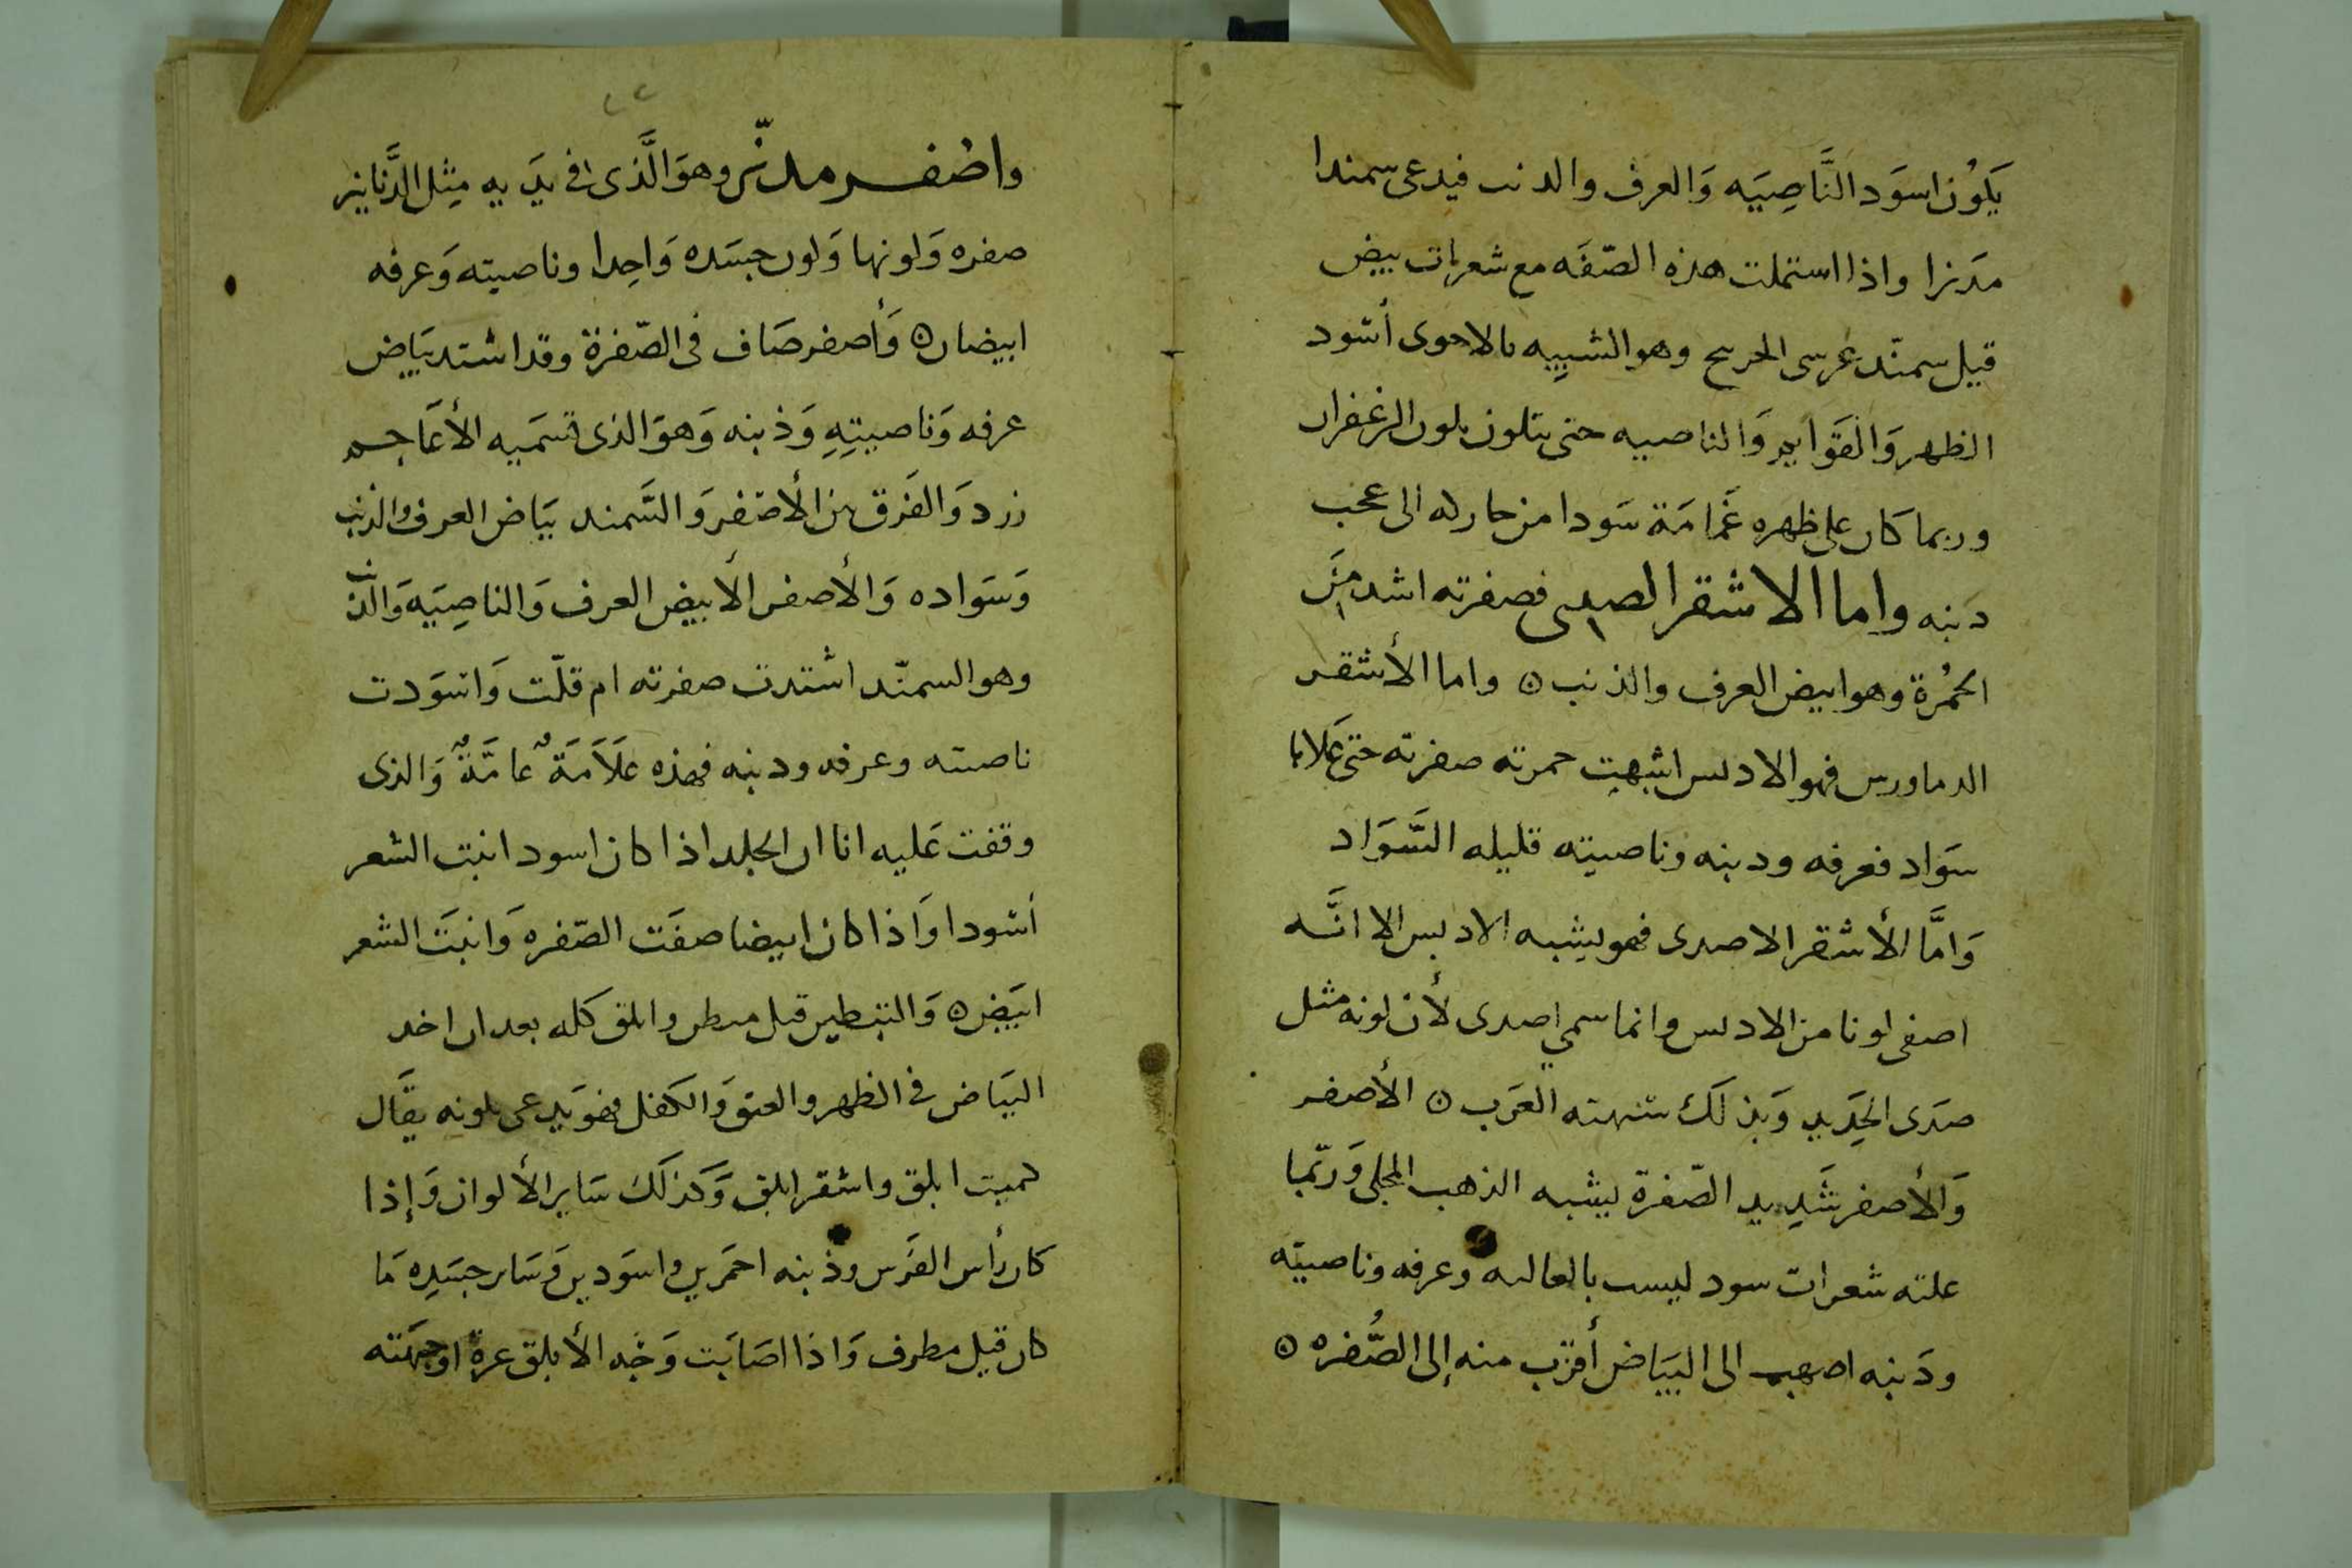 يَكوُن اسوَد النَّاصِيَه وَالعرف والدنب فيدعى سمندا
مدَنرا واذا استملت هذه الصّفَه مع شعرات بيض
قيل سمنّد وهو الشبيِه بالاحوى أسود
الظهر وَالقوَايم وَالناصيه حتى يتلون بلون الزعفران
وربما كان على ظهره غَمامَة سَودا من حاركه الى عجب
دَنبه واما الاشقر الصدى فصفرته اشد منَ
الحُمرة وهو ابيض العرف والذنب ۞ واما الأشقر
فهو الادبس اشبهت حمرته صفرته حتى
سوَاد فعرفه ودبنه وناصيته قليله السَّوَاد
وَامَّا الأشقر الاصدى فهو يشبه الادبس الا انَّه
اصفى لونا من الادبس وانما سمي اصدى لأن لونه مثل
صدَى الحَدِيد وَبذلَك شبهته العرَب ۞ الأصفر
وَالأصفر شَدِيد الصّفرة يشبه الذهب المجلى وَربّما
علته شعرات سود ليست بالعالىه وعرفه وناصيته
ودَنبه اصهب الى البيَاض أقرَب منه إلى الصُّفره ۞
٢٢
واصفر مدنّر وهوَ الَّذى فى يدَيه مِثل الدَّنانير
صفره وَلونها وَلون جسَده وَاحِدا وناصيته وَعرفه
ابيضان ۞ وَأصفر صَاف فى الصّفرة وقد اشتد بيَاض
عرفه وَناصيتِهِ وَذنبه وَهوَ الذى تسَميه الأعَاجم
زرد وَالفَرق بين الأصفر وَالسَّمند بيَاض العرف والذنب
وَسَواده وَالأصفر الأبيض العرف وَالناصِيَه وَالذنب
وهو السمنّد اشتدت صفرته ام قلّت وَاسوَدت
ناصيته وعرفه ودنبه فهذه علَاَمَةٌ عامَّةٌ وَالذى
وقفت عَليه انا ان الجلد اذا كان اسود انبت الشعر
أسودا وَاذا كان ابيضا صفَت الصّفره وَانبَت الشعر
ابيَض ۞ وَالتبطير قيل مبطر وابلق كله بعد ان اخد
البيَاض فى الظهر والعنق وَالكفل فهو يَدعى بلونه يقَال
كميت ابلق واشقر ابلق وَكذلَك سَاير الأ لوان وَإذا
كان رأس الفرَس وذنبه احمَرين واسوَدين وَسَاير جسَدِه مَا
كان قيل مطرف وَاذا اصَابَت وَجَه الأبلق غرة او جبَهته